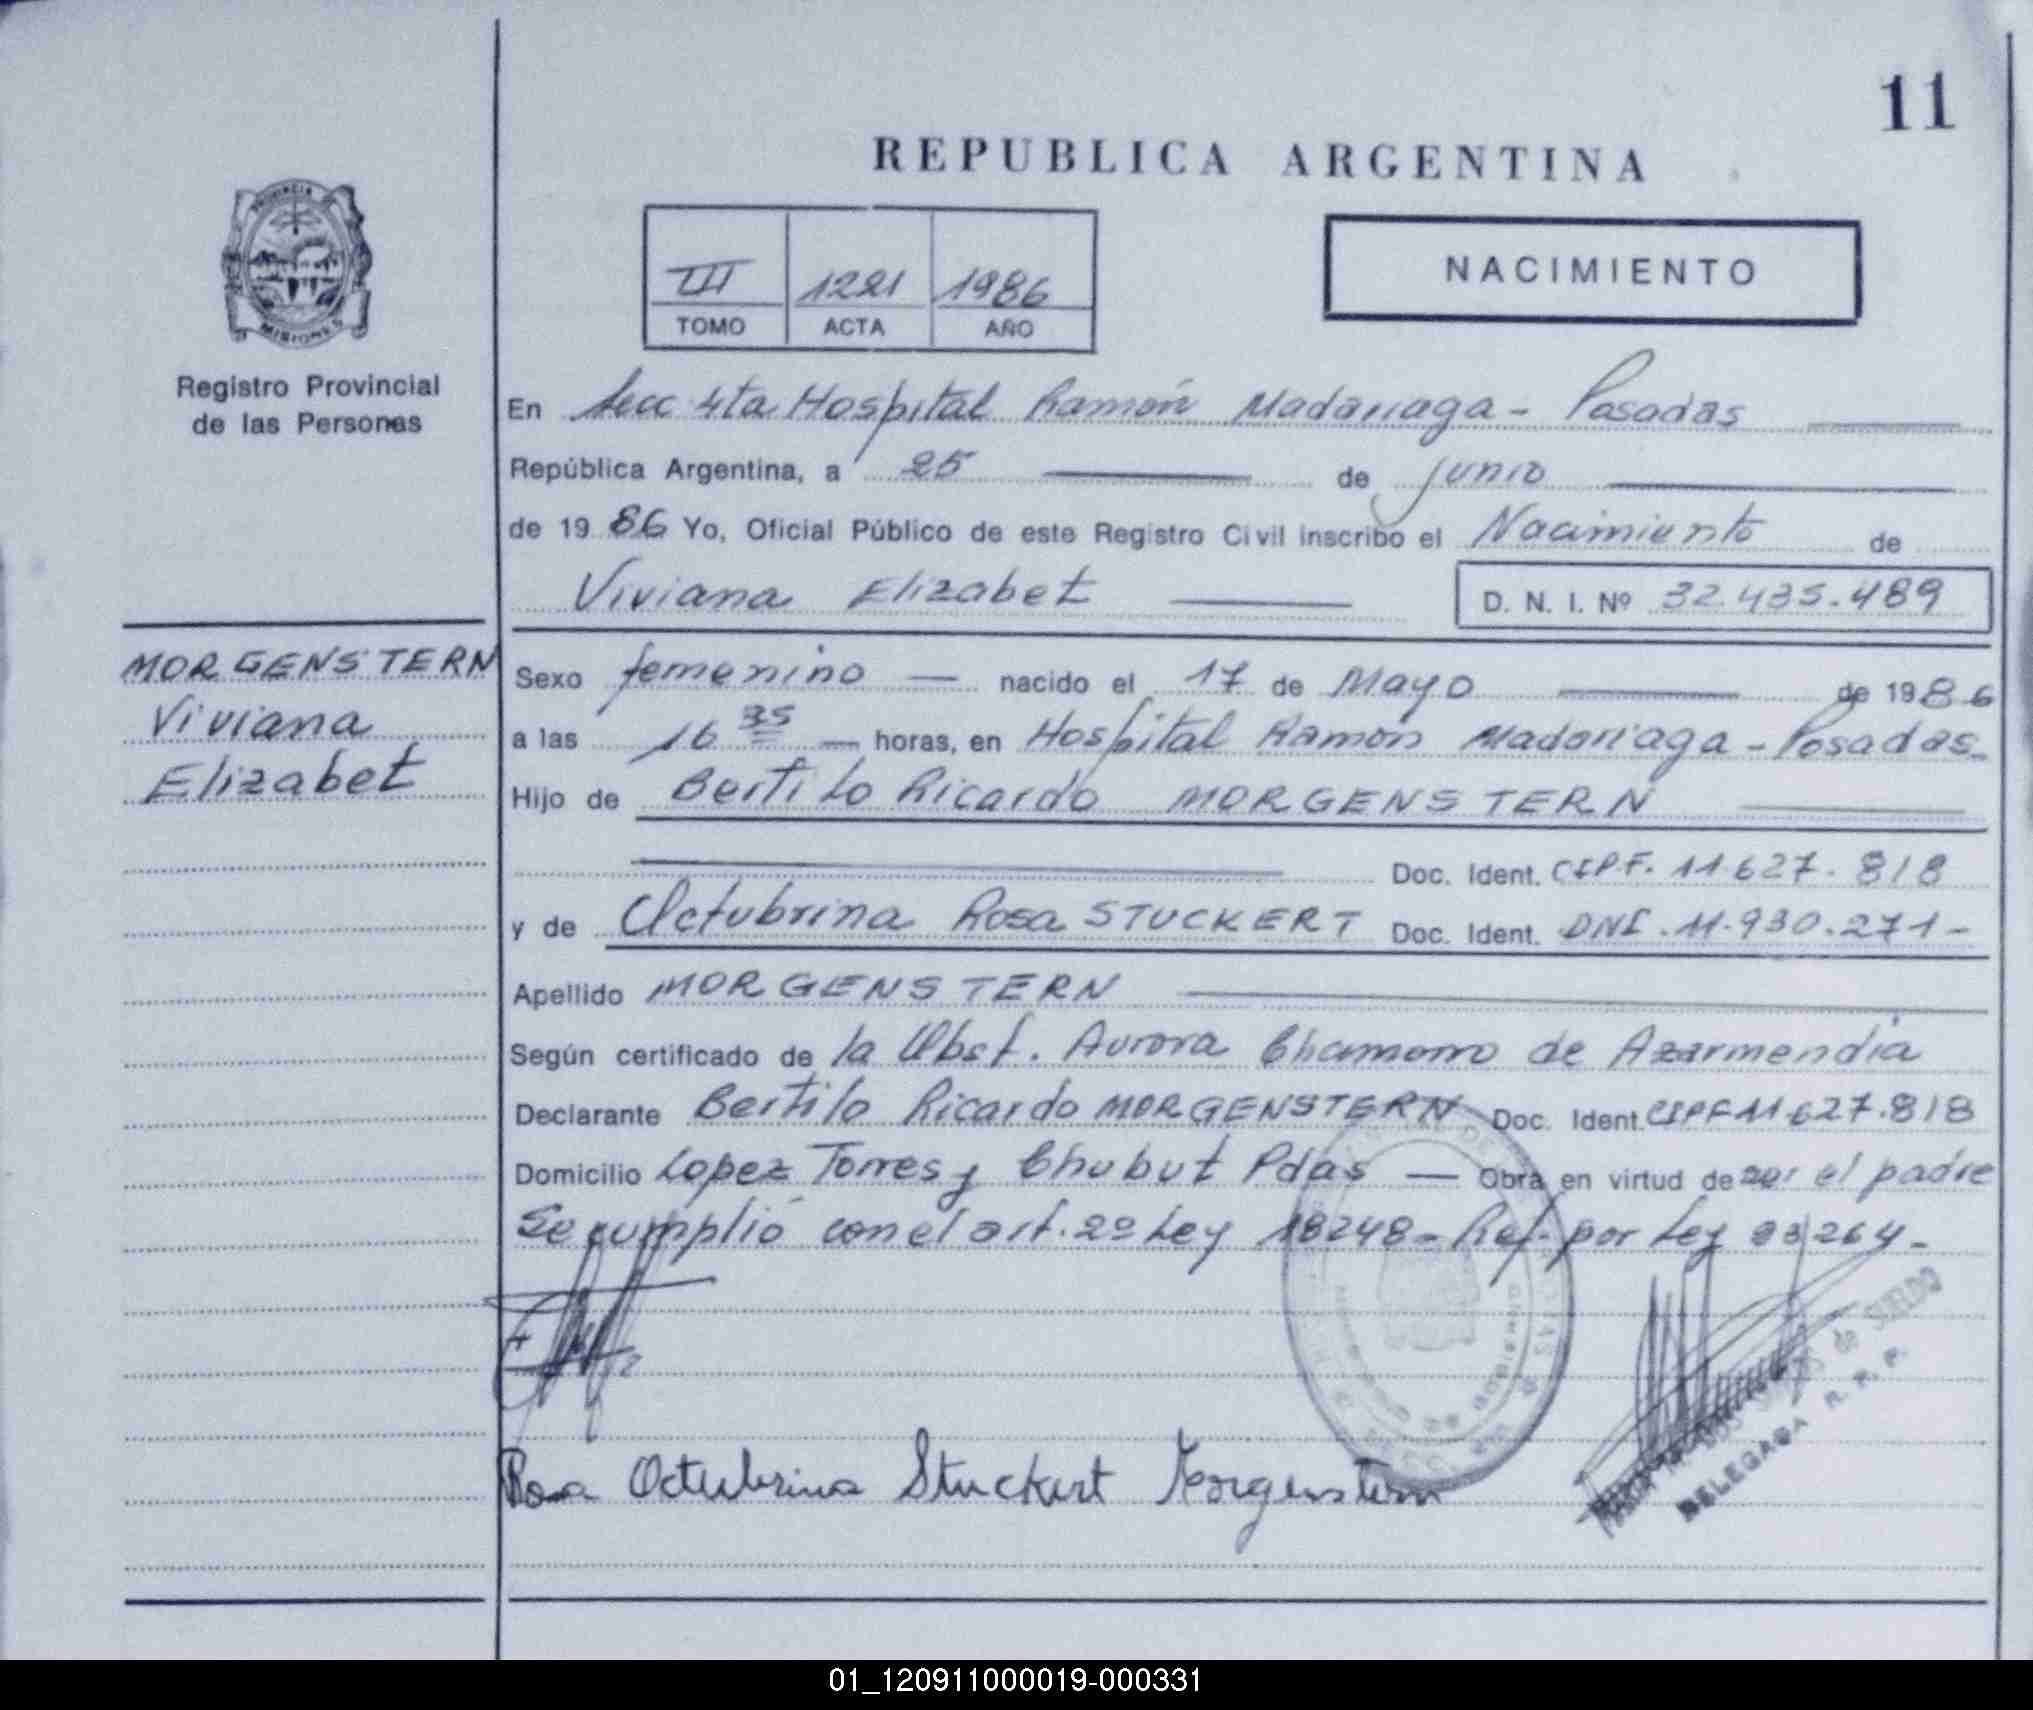 11
REPUBLICA ARGENTINA
PROVINCIA
MISIONES
III 1221 1986
TOMO ACTA AÑO
NACIMIENTO
Registro Provincial
de las Personas
En Secc 4ta Hospital Ramón Madariaga - Posadas
República Argentina, a 25 de junio
de 1986 Yo, Oficial Público de este Registro Civil inscribo el Nacimiento de
Viviana Elizabet D. N. I. Nº 32.435.489
MORGENSTERN
Viviana
Elizabet
Sexo femenino nacido el 17 de Mayo de 1986
a las 16 35 horas, en Hospital Ramón Madariaga - Posadas
Hijo de Bertilo Ricardo MORGENSTERN
Doc. Ident. CIPF. 11.627.818
y de Octubrina Rosa STUCKERT Doc. Ident. DNI. 11.930.271-
Apellido MORGENSTERN
Según certificado de la Obst. Aurora Chamorro de Azarmendia
Declarante Bertilo Ricardo MORGENSTERN Doc. Ident. CIPF 11.627.818
Domicilio Lopez Torres y Chubut Pdas Obra en virtud de ser el padre
Se cumplió con el art. 2º Ley 18248 - Ref. por Ley 23264 -
de SUELDO
DELEGADA R. P. P.
Rosa Octubrina Stuckert Morgenstern
01_120911000019-000331